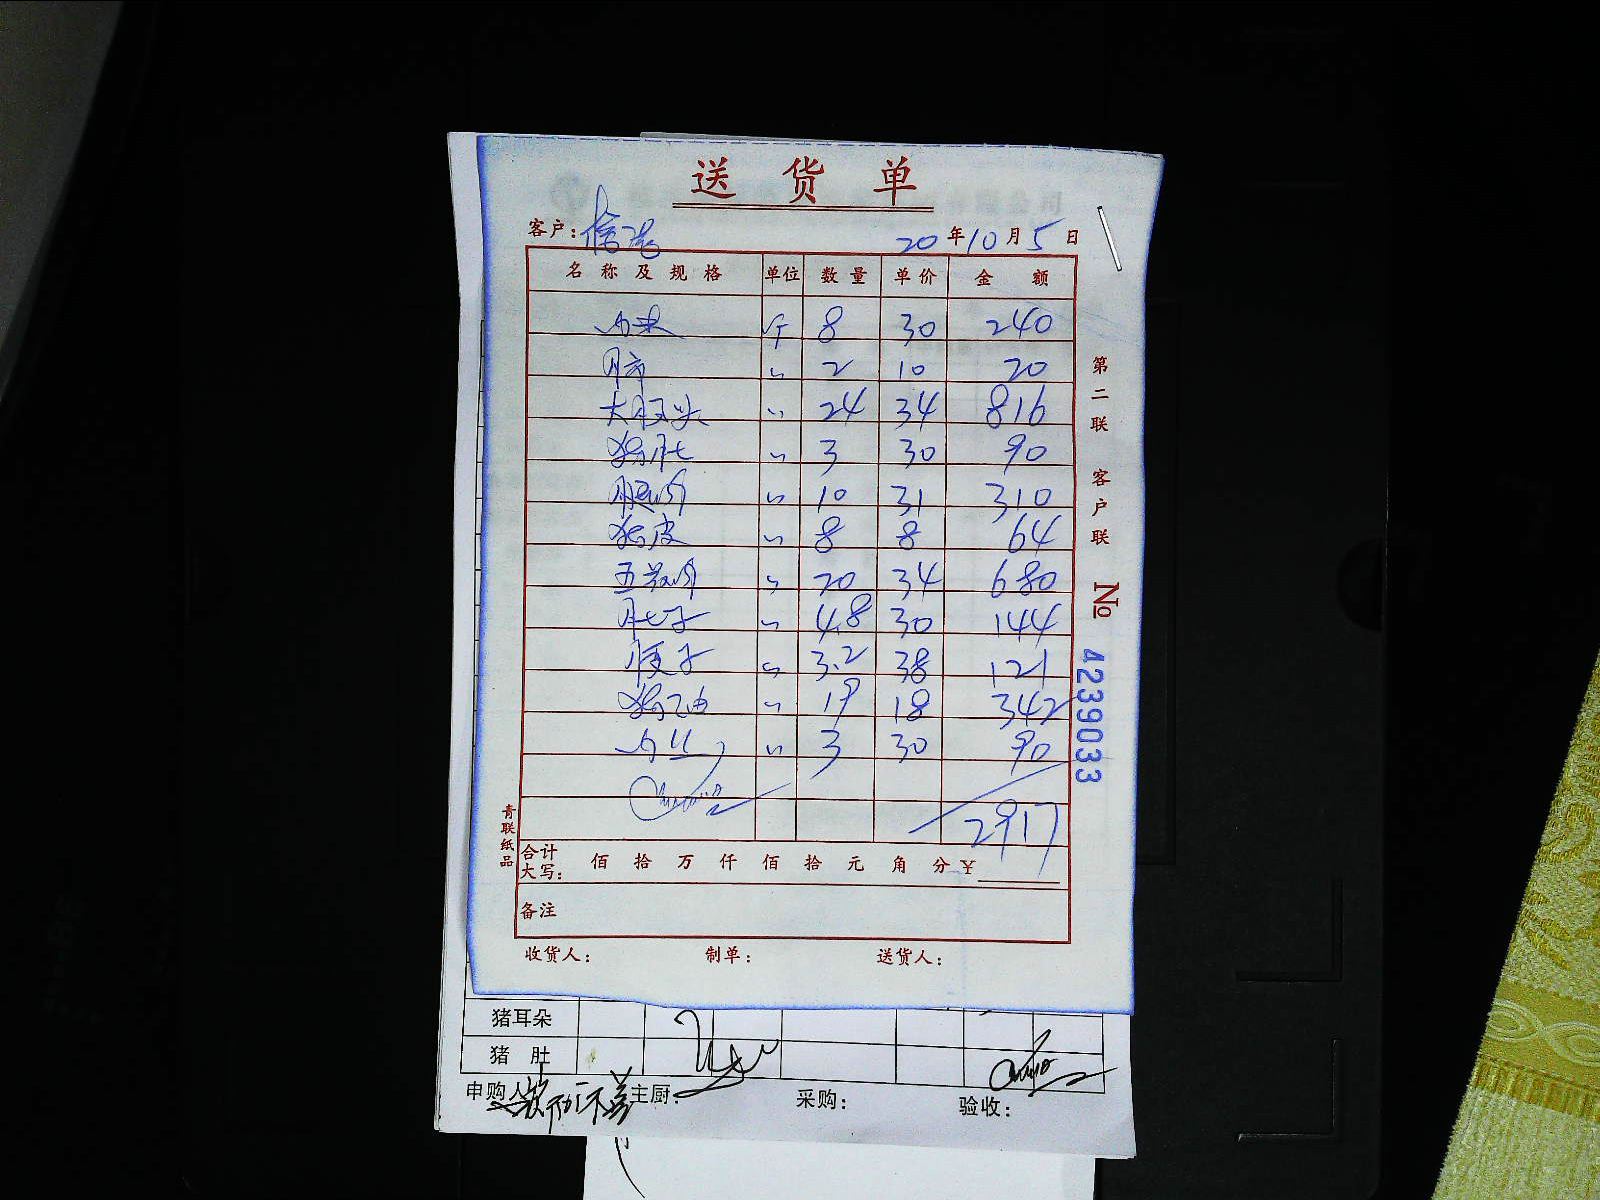 送货单
客户: 20年10月5日
名称及规格 单位 数量 单价 金额
个 8 30 240
〃 2 10 20
大 〃 24 34 816
猪肚 〃 3 30 90
腿肉 〃 10 31 310
猪皮 〃 8 8 64
五花肉 〃 20 34 680
肚子 〃 4.8 30 144
〃 3.2 38 121
猪油 〃 19 18 342
肉丝 〃 3 30 90
2917
合计大写: 佰 拾 万 仟 佰 拾 元 角 分 ¥
备注
收货人: 制单: 送货人:
第二联 客户联
No 4239033
青联纸品
猪耳朵
猪肚
申购人 主厨: 采购: 验收: